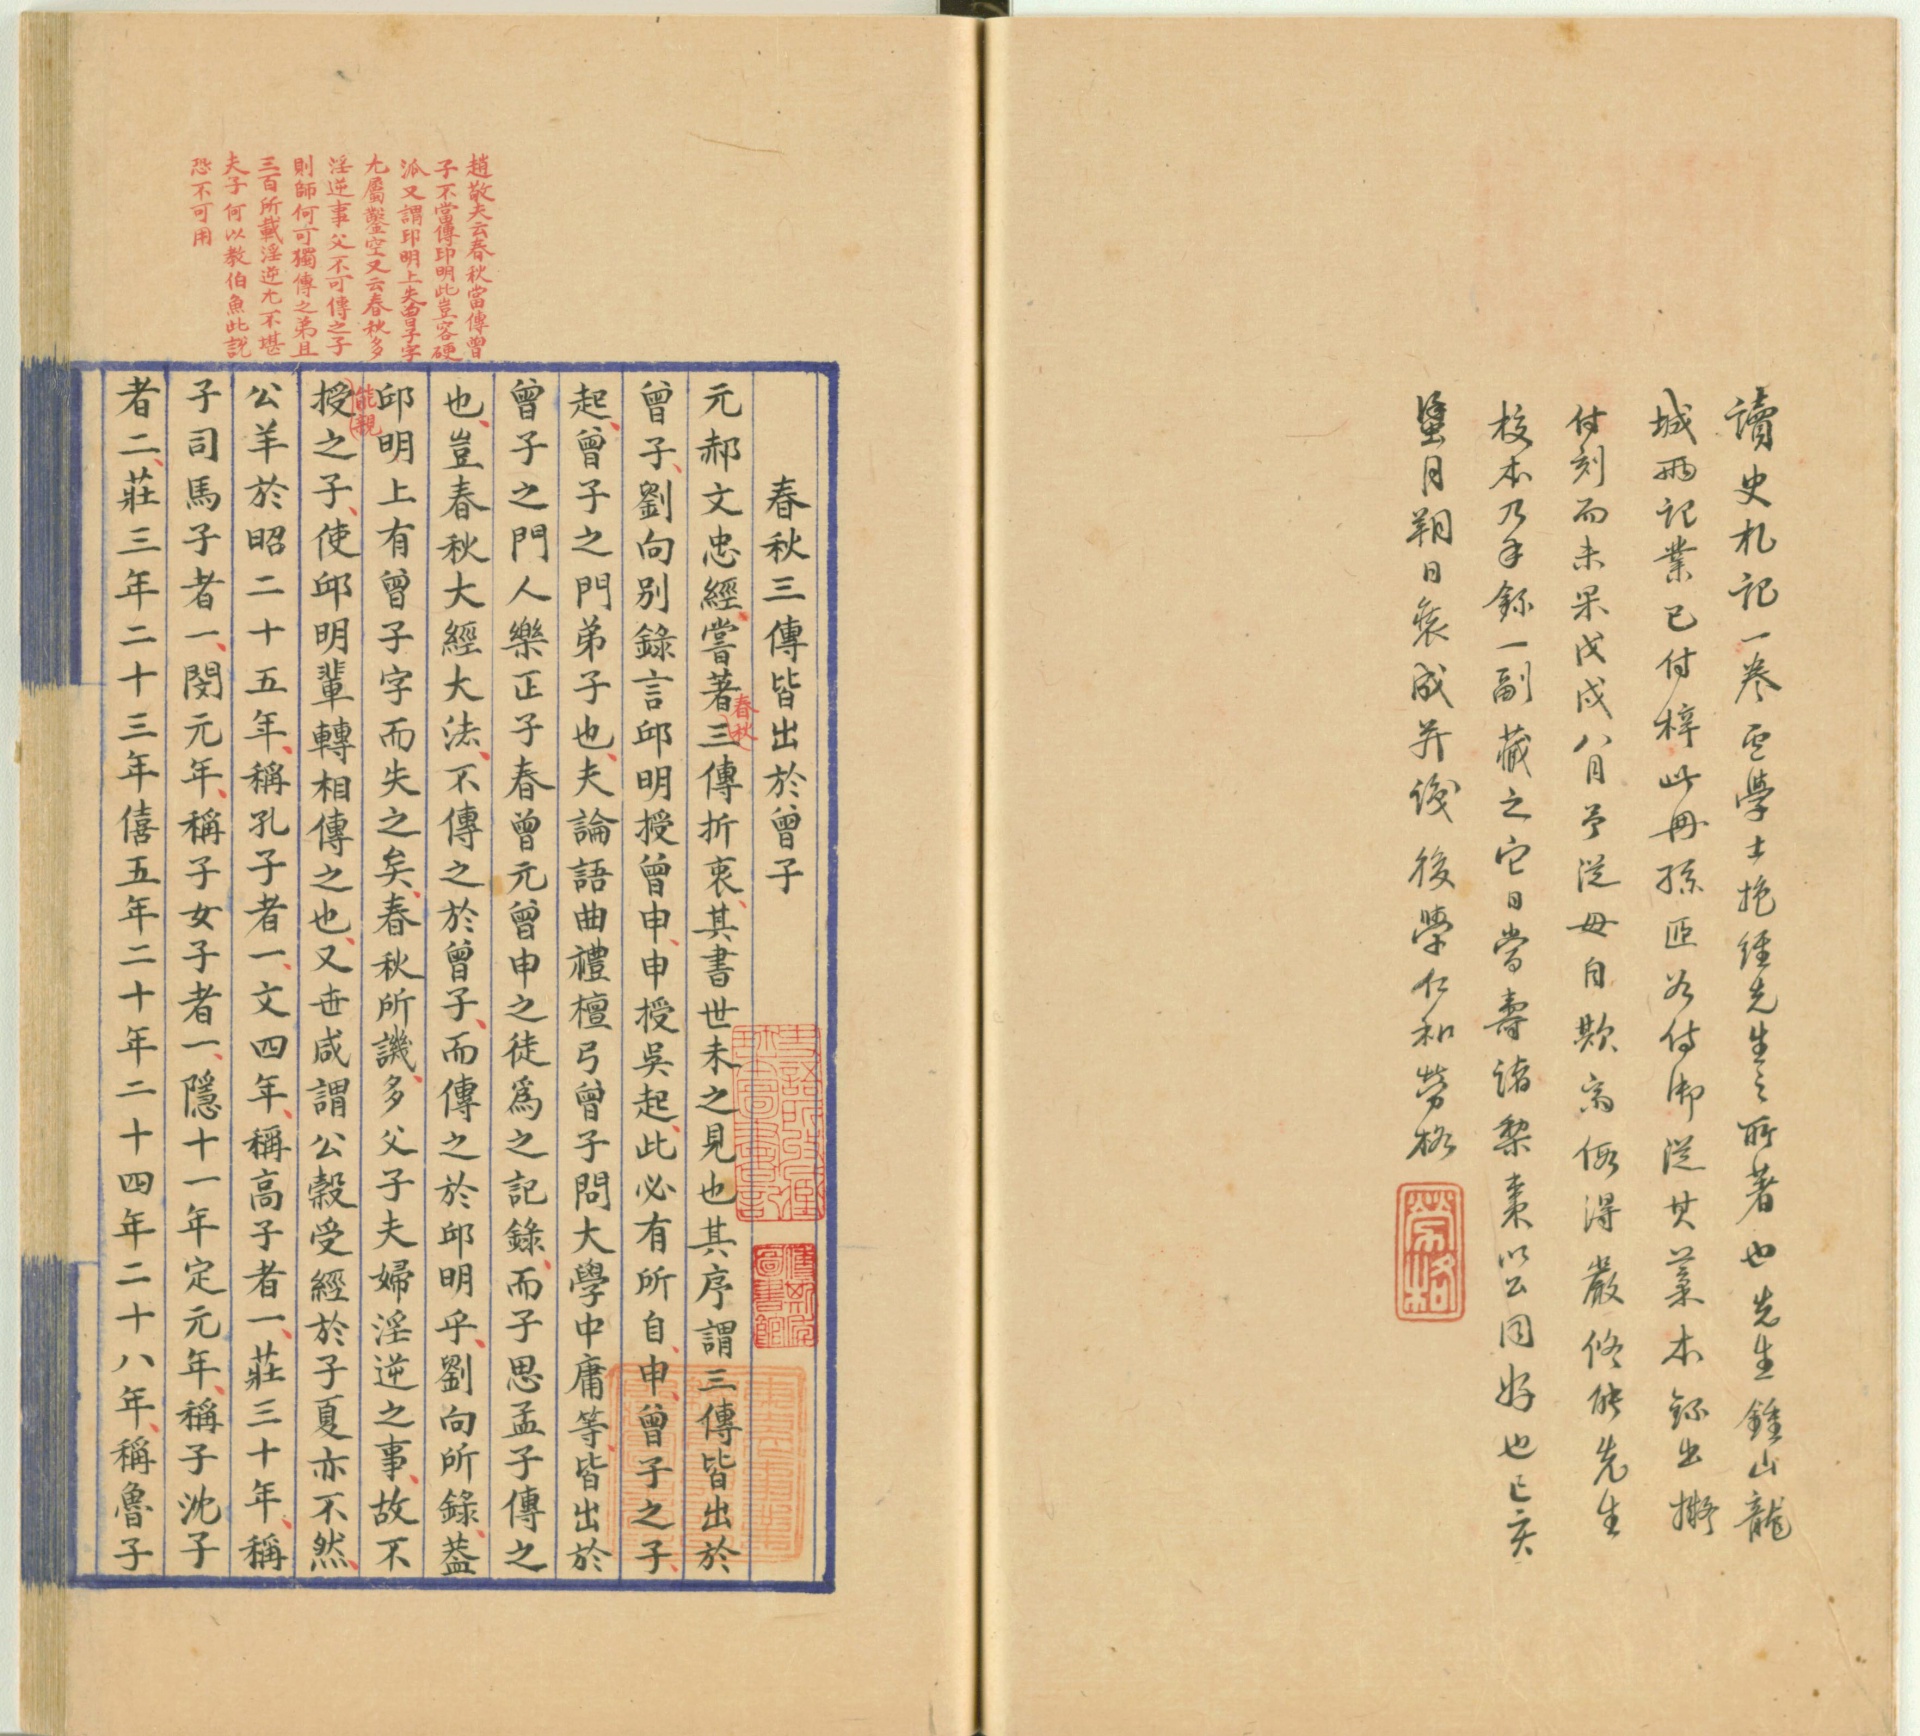 讀史札記一卷盧學士抱經先生之所著也先生鍾山龍
城兩記業已付梓此冊孫匝為侍御從其藁本錄出擬
付刻而未果戊戌八月予從毋自欺齋假得嚴修能先生
校本乃手錄一副藏之它日當壽諸棃棗以公同好也己亥
窒月朔日裝成并識後學仁和勞格
勞格
春秋三傳皆出於曾子
元郝文忠經嘗著三傳折衷其書世未之見也其序謂三傳皆出於
春秋
曾子劉向別錄言邱明授曾申申授吳起此必有所自申曾子之子
起曾子之門弟子也夫論語曲禮檀弓曾子問大學中庸等皆出於
曾子之門人樂正子春曾元曾申之徒為之記錄而子思孟子傳之
也豈春秋大經大法不傳之於曾子而傳之於邱明乎劉向所錄葢
邱明上有曾子字而失之矣春秋所譏多父子夫婦淫逆之事故不
能親
授之子使邱明輩轉相傳之也又世咸謂公穀受經於子夏亦不然
公羊於昭二十五年稱孔子者一文四年稱高子者一莊三十年稱
子司馬子者一閔元年稱子女子者一隱十一年定元年稱子沈子
者二莊三年二十三年僖五年二十年二十四年二十八年稱魯子
趙敬夫云春秋當傳曾
子不當傳邱明此豈容硬
派又謂邱明上失曾子字
尤屬鑿空又云春秋多
淫逆事父不可傳之子
則師何可獨傳之弟且
三百所載淫逆尤不堪
夫子何以教伯魚此說
恐不可用